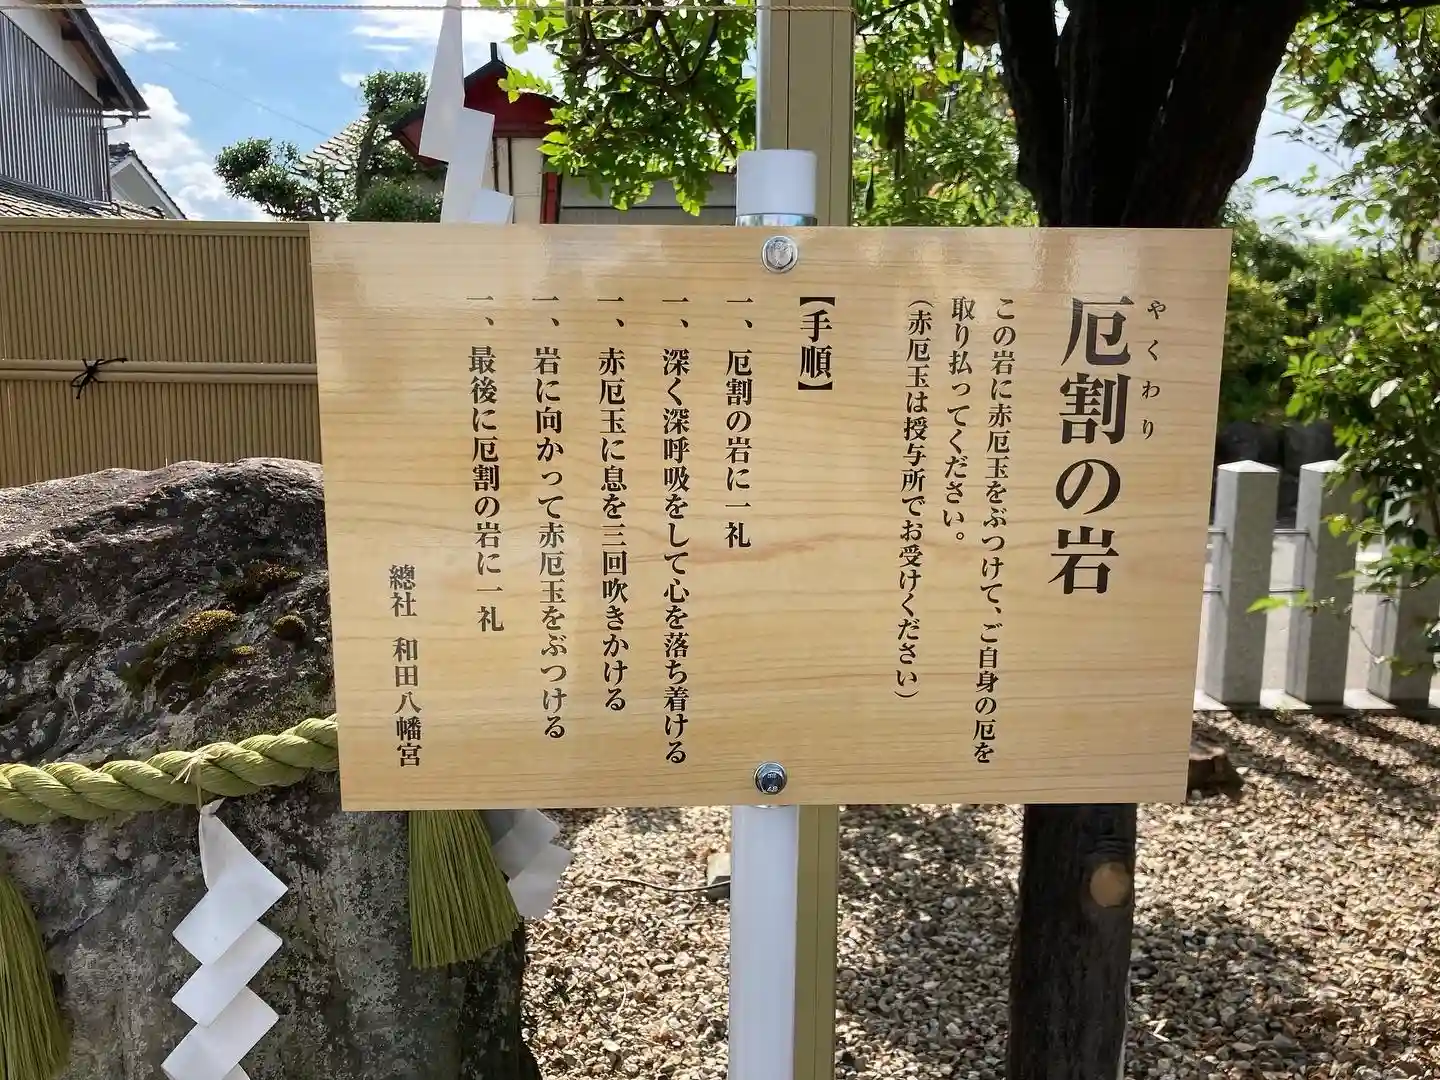 やくわり
厄割の岩
この岩に赤厄玉をぶつけて、ご自身の厄を
取り払ってください。
（赤厄玉は授与所でお受けください）
【手順】
一、厄割の岩に一礼
一、深く深呼吸をして心を落ち着ける
一、赤厄玉に息を三回吹きかける
一、岩に向かって赤厄玉をぶつける
一、最後に厄割の岩に一礼
總社 和田八幡宮